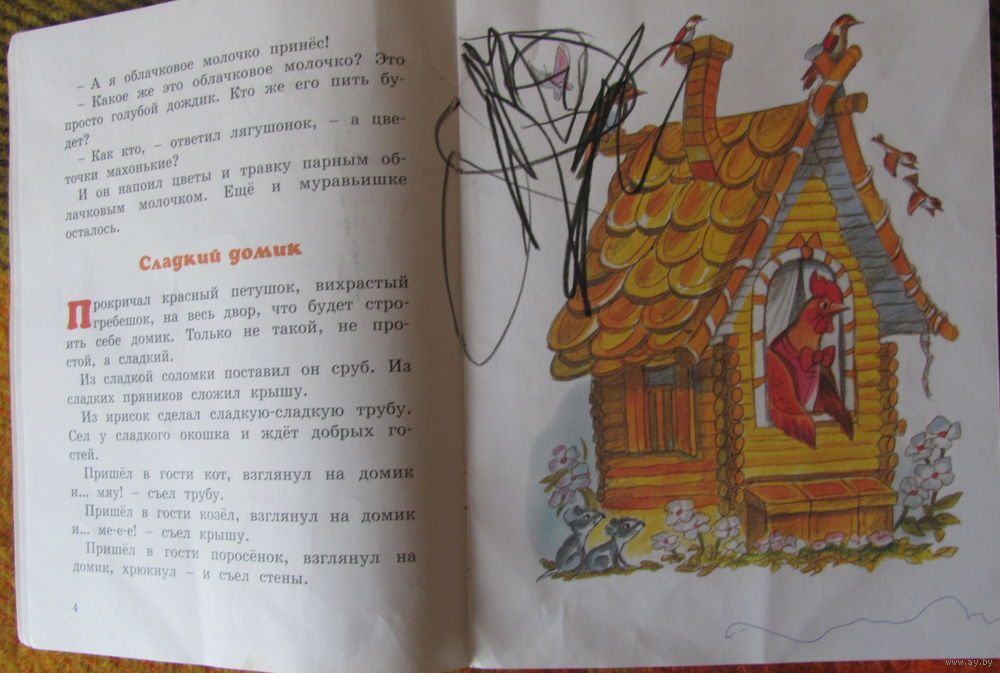 – А я облачковое молочко принёс!
– Какое же это облачковое молочко? Это
просто голубой дождик. Кто же его пить бу-
дет?
– Как кто, – ответил лягушонок, – а цве-
точки махонькие?
И он напоил цветы и травку парным об-
лачковым молочком. Ещё и муравьишке
осталось.
Сладкий домик
Прокричал красный петушок, вихрастый
гребешок, на весь двор, что будет стро-
ить себе домик. Только не такой, не про-
стой, а сладкий.
Из сладкой соломки поставил он сруб. Из
сладких пряников сложил крышу.
Из ирисок сделал сладкую-сладкую трубу.
Сел у сладкого окошка и ждёт добрых го-
стей.
Пришёл в гости кот, взглянул на домик
и... мяу! – съел трубу.
Пришёл в гости козёл, взглянул на домик
и... ме-е-е! – съел крышу.
Пришёл в гости поросёнок, взглянул на
домик, хрюкнул – и съел стены.
4
www.ay.by